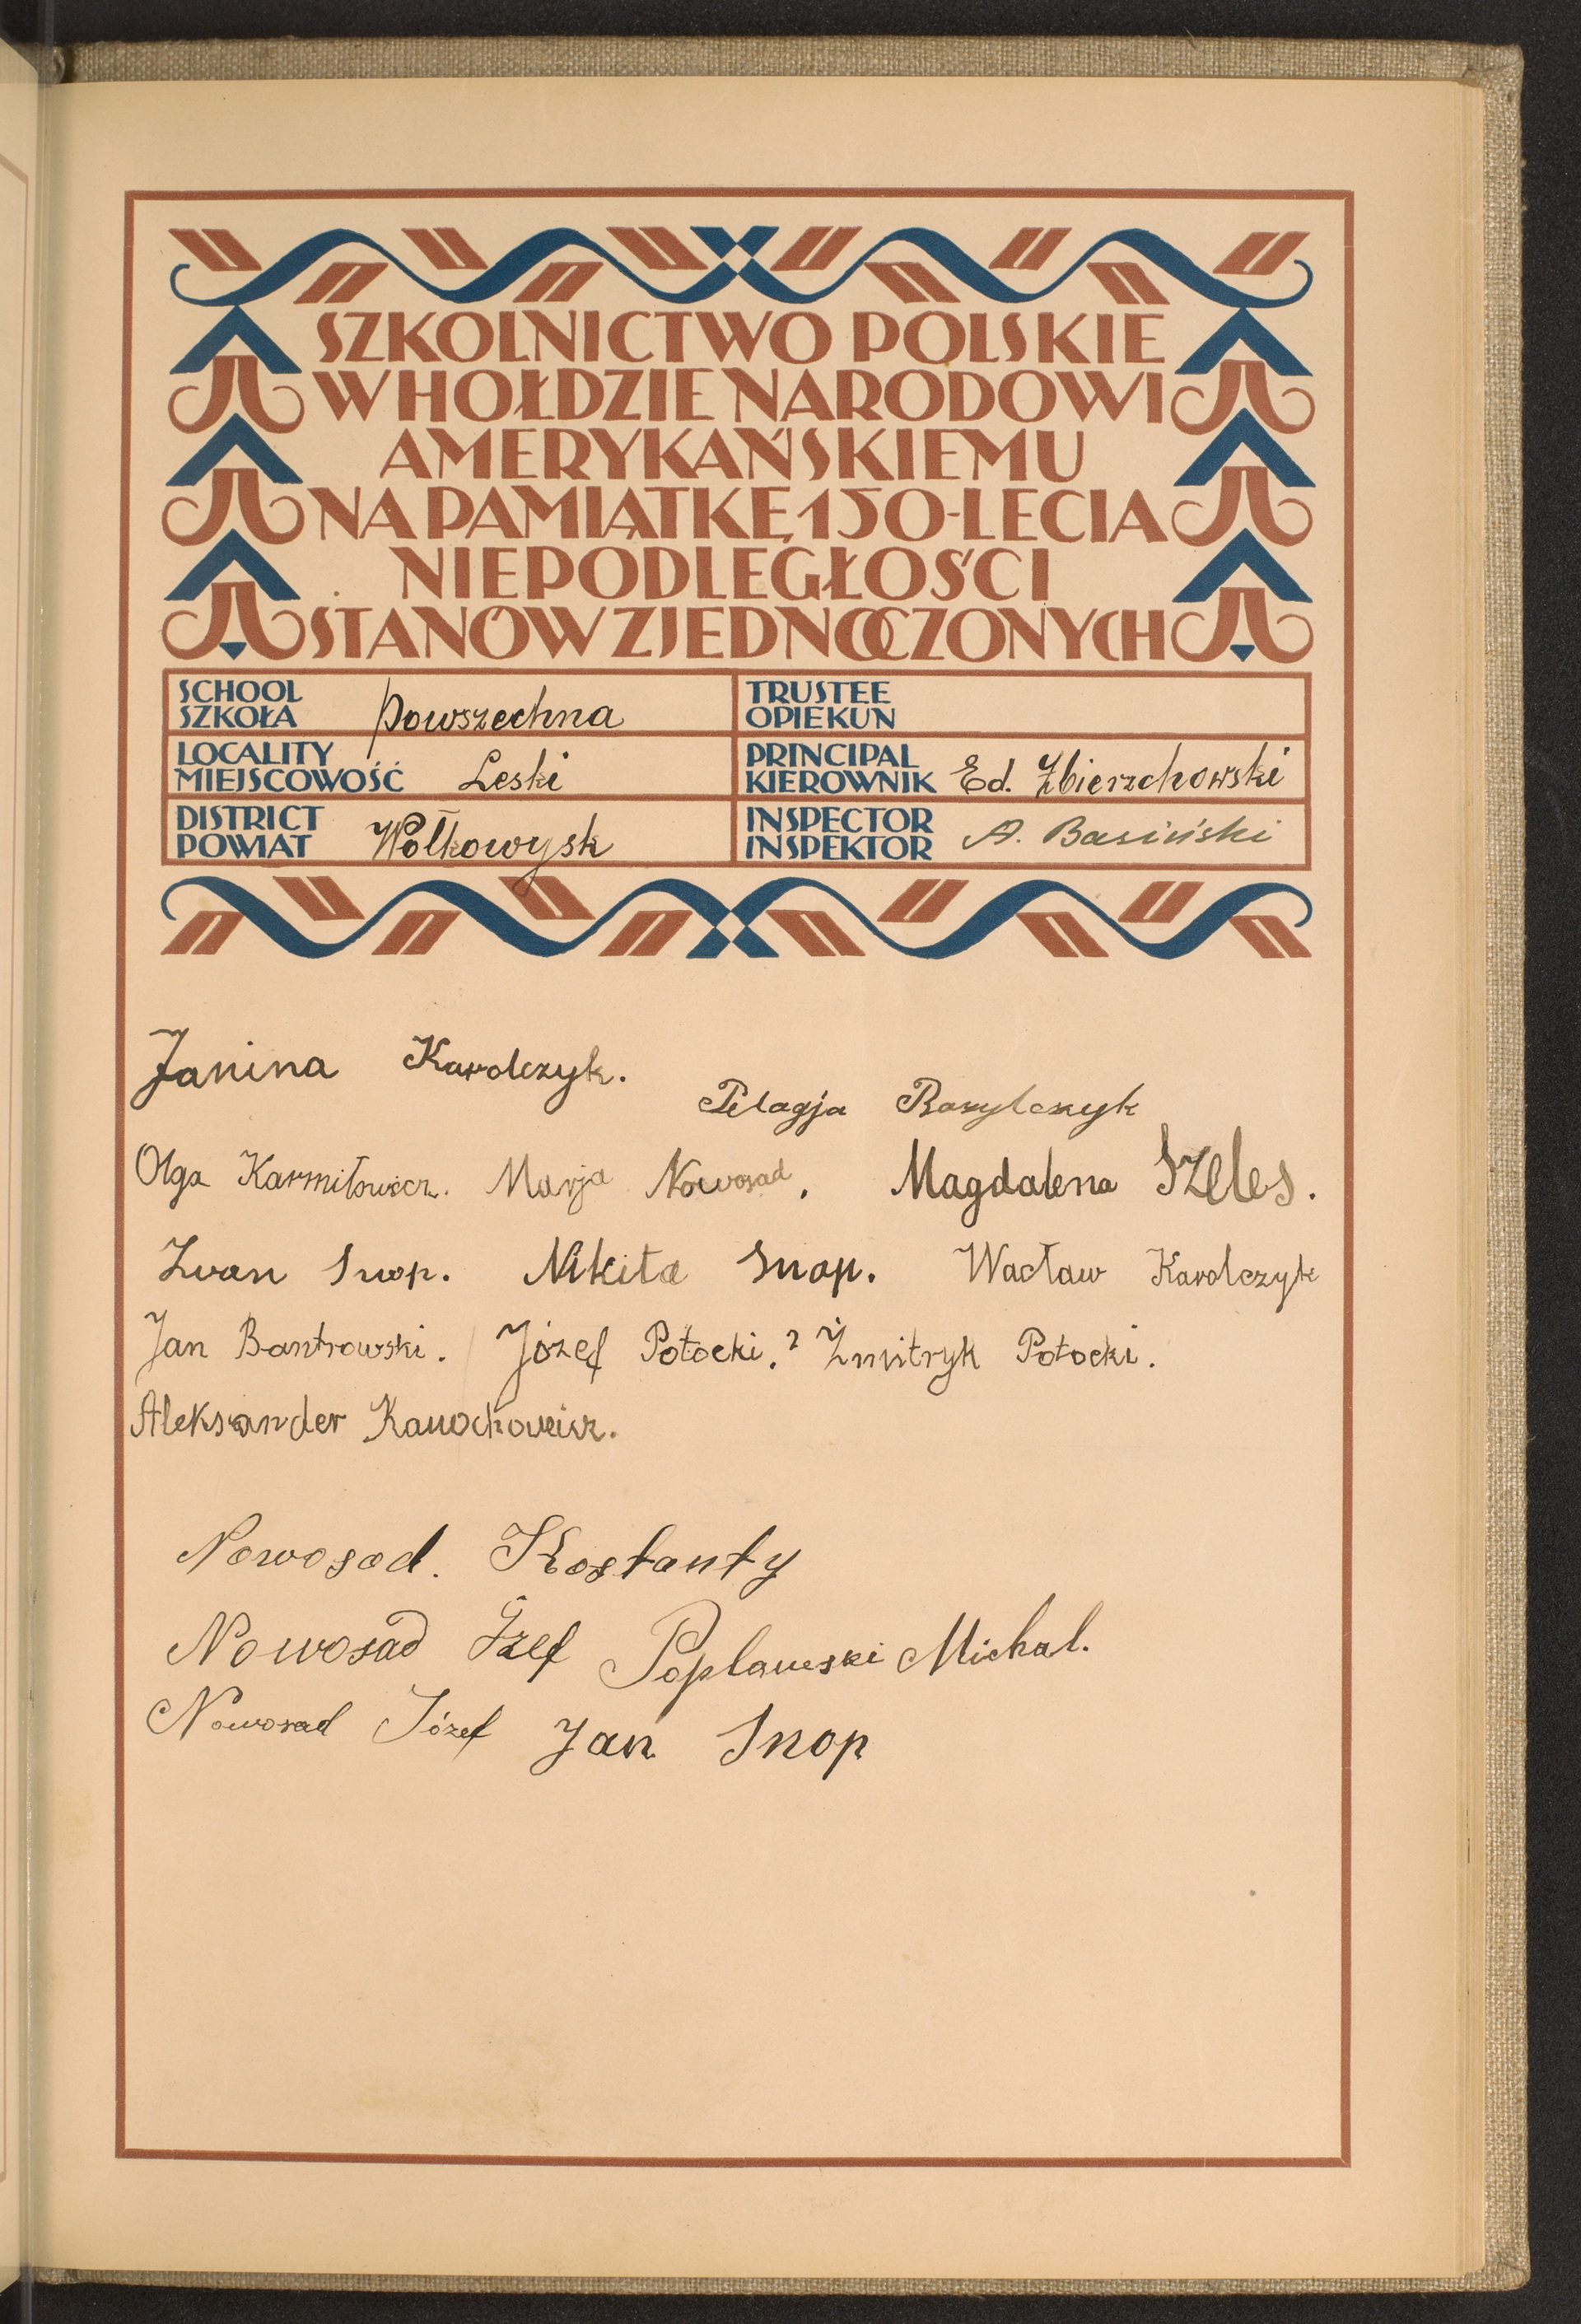 SZKOLNICTWO POLSKIE
W HOŁDZIE NARODOWI
AMERYKAŃSKIEMU
NA PAMIĄTKĘ 150-LECIA
NIEPODLEGŁOŚCI
STANÓW ZJEDNOCZONYCH
SCHOOL
SZKOŁA Powszechna
TRUSTEE
OPIEKUN
LOCALITY
MIEJSCOWOŚĆ Leski
PRINCIPAL
KIEROWNIK Ed. Zbierzchowski
DISTRICT
POWIAT Wołkowysk
INSPECTOR
INSPEKTOR A. Basiński
Janina Karolczyk.
Pelagja Bazylczyk
Olga Karmiłowicz. Marja Nowosad. Magdalena Szeles.
Iwan Snop. Nikita Snop. Wacław Karolczyk
Jan Bantrowski. Józef Potocki. Żmitryk Potocki.
Aleksander
Nowosad. Kostanty
Nowosad Józef Poplawski Michal.
Nowosad Józef Jan Snop